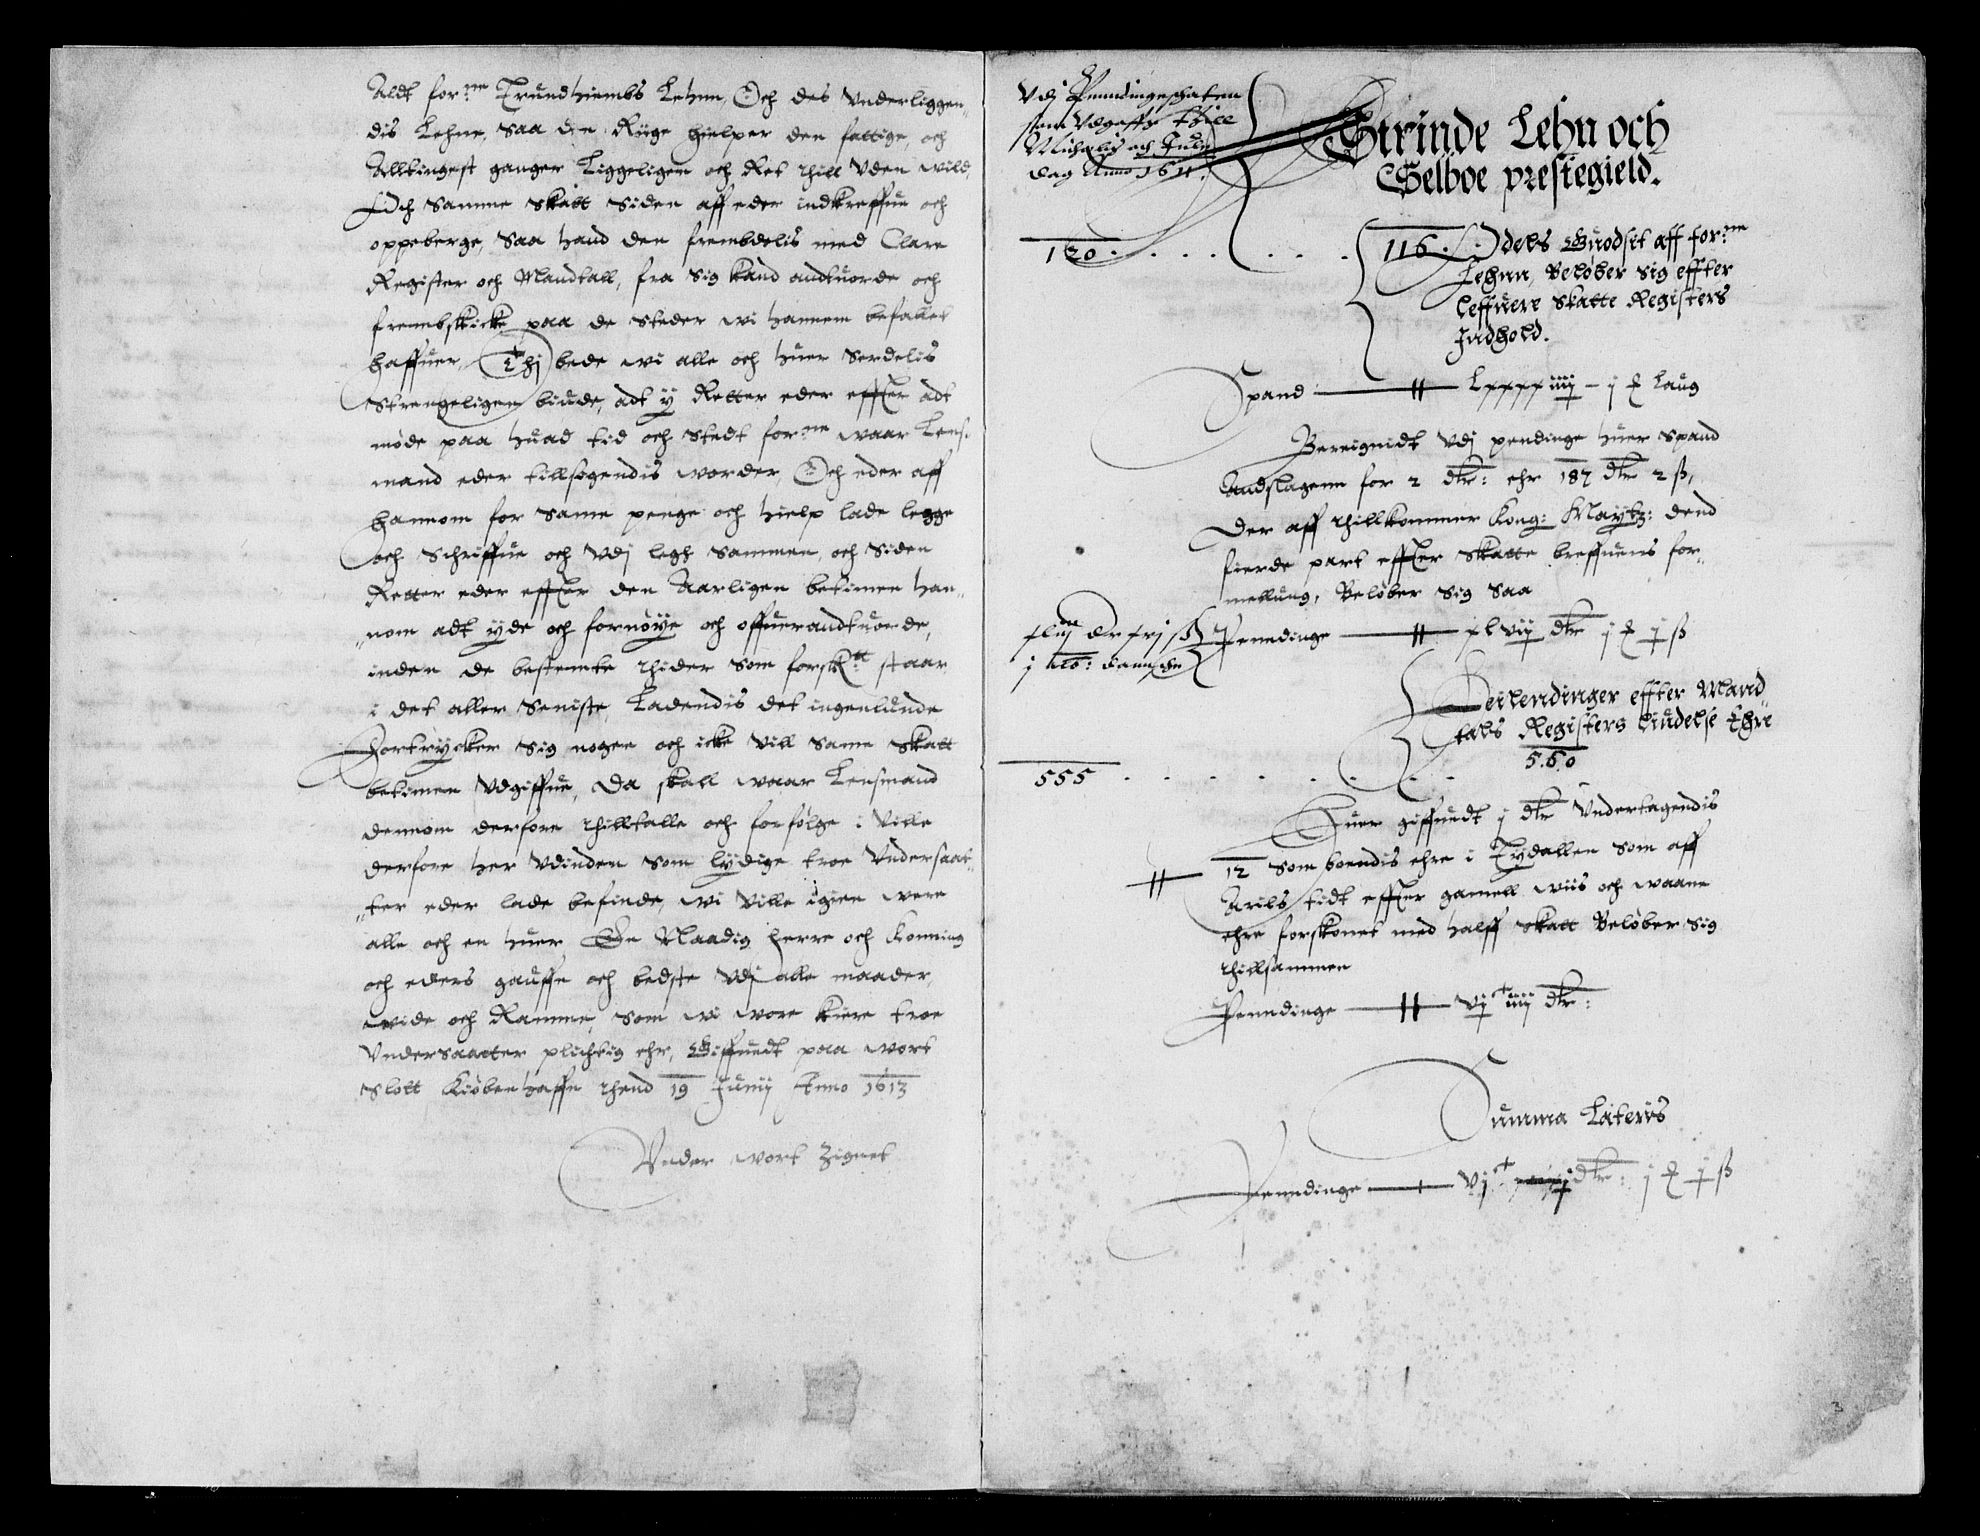 Aldt for:ne Trundhiembs Lehnn, Och des Vnderliggen„
dis Lehne, Saa den Rüge hielper den fattige, och
Alltingest ganger Liggeligen och Ret thill Vden wild,
Och Samme Skatt Siden aff eder indkreffue och
oppeberge, Saa hand den frembdelis med Clare
Register och Mandtall, fra Sig kand andtuorde och
frembskicke paa de Steder wi hannem befallet
haffuer, Thj bede wi alle och huer Serdelis
Strengeligen biude, adt y Retter eder effter adt
møde paa huad tid och Stedt for:ne waar Lens„
mand eder tillsigendis worder, Och eder aff
hannom for Same penge och hielp lade legge
och Schriffue och Vdj legh Sammen, och Siden
Retter eder effter den Aarligen betimen han„
„nom adt yde och fornøye och offuerandtuorde,
inden de bestemte thider Som forsk:tt staar
i det aller Seniste, Ladendis det ingenlunde
Fortrycker Sig nogen och icke Vill Same Skatt
betimen Vdgiffue, Da skall waar Lensmand
dennom derfore thilltalle och forfølge i Ville
derfore her Vdinden Som lydige troe Vndersaat„
„ter eder lade befinde, wi Ville igien were
alle och en huer En Naadig herre och Konning
och eders gauffn och bedste Vdj alle maader,
wide och Ramme, Som wi wore kiere troe
Vndersaatter plichtig ehr, Giffuedt paa wort
Slott Kiøbenhaffn thend 19 Junij Anno 1613
Vnder wort Zignet
Vdj Penndingeschaten
som Vdgaffs thill
Michaelis och Jule
dag Anno 1611.
Strinde Lehn och
Selboe prestegield.
120 . . . . . . .
116. Odels Guodset aff for:ne
Lehnn, Beløber Sig effter
Leffuere Skatte Registers
Indhold.
Spand — Lxxxx iiij – j ℔ Laug
Beregnidt Vdj pendinge huer Spand
Andslagenn for 2 dlr: ehr 187 dlr 2 ß,
Der aff thillkommer Kong: Maytz: dend
fierde part effter Skatte breffuens for„
melding, Beløber Sig Saa
Penndinge — xlvij dlr j ℔ j ß
Leilendinger effter Mand„
tals Registers Liudelse Ehre
560
555 . . . . . . .
Huer giffuedt j dlr Vndertagendis
12 Som boendis ehre i Tydallen Som aff
Arils tidt effter gamell wiis och waane
ehre forskonet med halff Skatt Beløber Sig
thillsammen
Penndinge — Vc iiij dlr:
Summa Lateris
Penndinge — Vj
3